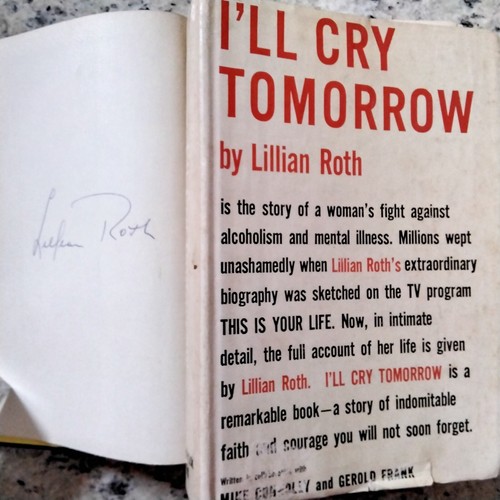 Lillian Roth
I'LL CRY
TOMORROW
by Lillian Roth
is the story of a woman's fight against
alcoholism and mental illness. Millions wept
unashamedly when Lillian Roth's extraordinary
biography was sketched on the TV program
THIS IS YOUR LIFE. Now, in intimate
detail, the full account of her life is given
by Lillian Roth. I'LL CRY TOMORROW is a
remarkable book—a story of indomitable
faith and courage you will not soon forget.
Written in with
MIKE CONNOLLY and GEROLD FRANK